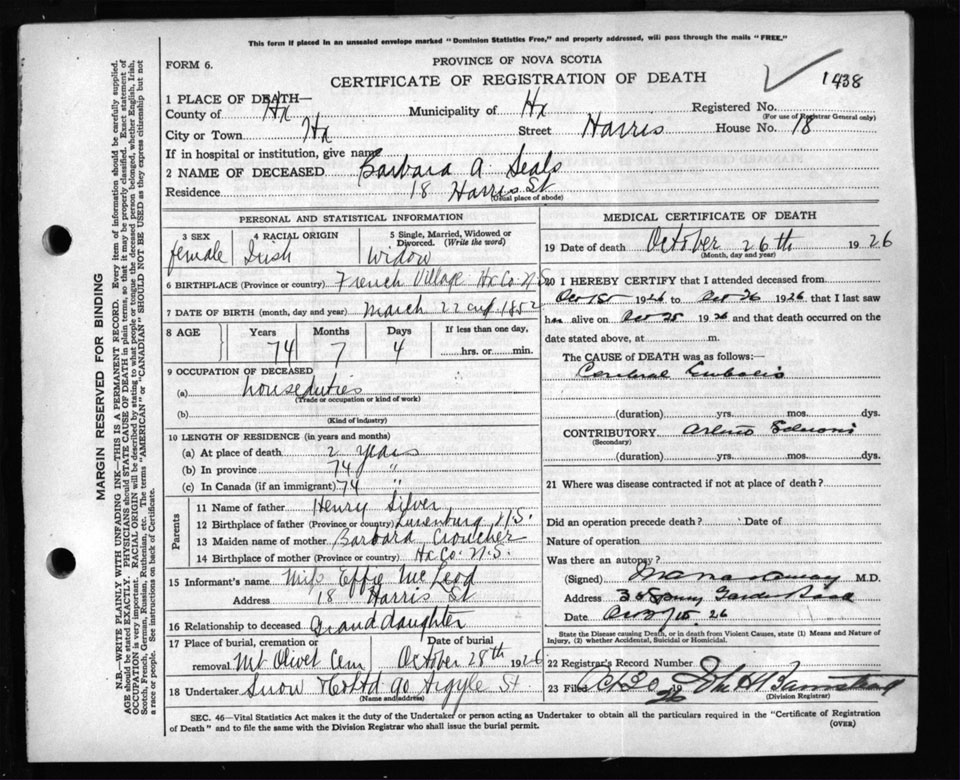 This form if placed in an unsealed envelope marked "Dominion Statistics Free," and properly addressed, will pass through the mails "FREE."
FORM 6.
PROVINCE OF NOVA SCOTIA
CERTIFICATE OF REGISTRATION OF DEATH
1438
1 PLACE OF DEATH—
County of Hx Municipality of Hx Registered No.
(For use of Registrar General only)
City or Town Hx Street Harris House No. 18
If in hospital or institution, give name
2 NAME OF DECEASED Barbara A. Seals
Residence 18 Harris St
(Usual place of abode)
PERSONAL AND STATISTICAL INFORMATION
3 SEX 4 RACIAL ORIGIN 5 Single, Married, Widowed or Divorced. (Write the word)
female Irish Widow
6 BIRTHPLACE (Province or country) French Village Hx Co N.S
7 DATE OF BIRTH (month, day and year) March 22 1852
8 AGE Years Months Days If less than one day,
74 7 4 hrs. or min.
9 OCCUPATION OF DECEASED
(a) houseduties
(Trade or occupation or kind of work)
(b)
(Kind of industry)
10 LENGTH OF RESIDENCE (in years and months)
(a) At place of death 2 years
(b) In province 74 "
(c) In Canada (if an immigrant) 74 "
Parents
11 Name of father Henry Silver
12 Birthplace of father (Province or country) Lunenburg N.S.
13 Maiden name of mother Barbara Croucher
14 Birthplace of mother (Province or country) Hx Co. N.S.
15 Informant's name Miss Effie McLeod
Address 18 Harris St
16 Relationship to deceased Granddaughter
17 Place of burial, cremation or removal Mt Olivet Cem Date of burial October 28th 1926
18 Undertaker Snow & Co Ltd 90 Argyle St
(Name and address)
MEDICAL CERTIFICATE OF DEATH
19 Date of death October 26th 1926
(Month, day and year)
20 I HEREBY CERTIFY that I attended deceased from
Oct 1926 to Oct 26 1926 that I last saw
h alive on Oct 25 1926 and that death occurred on the
date stated above, at m.
The CAUSE of DEATH was as follows:—
Cerebral Embolis
(duration) yrs. mos. dys.
CONTRIBUTORY Arterio Sclerosis
(Secondary)
(duration) yrs. mos. dys.
21 Where was disease contracted if not at place of death?
Did an operation precede death? Date of
Nature of operation
Was there an autopsy?
(Signed) M.D.
Address Spring Garden Road
Date Oct 26
State the Disease causing Death, or in death from Violent Causes, state (1) Means and Nature of Injury, (2) whether Accidental, Suicidal or Homicidal.
22 Registrar's Record Number
23 Filed Oct 30 1926
(Division Registrar)
SEC. 46—Vital Statistics Act makes it the duty of the Undertaker or person acting as Undertaker to obtain all the particulars required in the "Certificate of Registration
of Death" and to file the same with the Division Registrar who shall issue the burial permit.
(OVER)
MARGIN RESERVED FOR BINDING
N.B.—WRITE PLAINLY WITH UNFADING INK—THIS IS A PERMANENT RECORD. Every item of information should be carefully supplied.
AGE should be stated EXACTLY. PHYSICIANS should STATE CAUSE OF DEATH in plain terms, so that it may be properly classified. Exact statement of
OCCUPATION is very important. RACIAL ORIGIN will be described by stating to what people or tongue the deceased person belonged, whether English, Irish,
Scotch, French, German, Russian, Ruthenian, etc. The terms "AMERICAN" or "CANADIAN" SHOULD NOT BE USED as they express citizenship but not
a race or people. See instructions on back of Certificate.